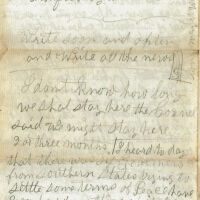 Write soon and often
and write all the news
I don't know how long
we shal stay here the Colonel
said we might stay here
2 or three months. I heard to day
that there was
from southern States trying to
settle some terms of Peace